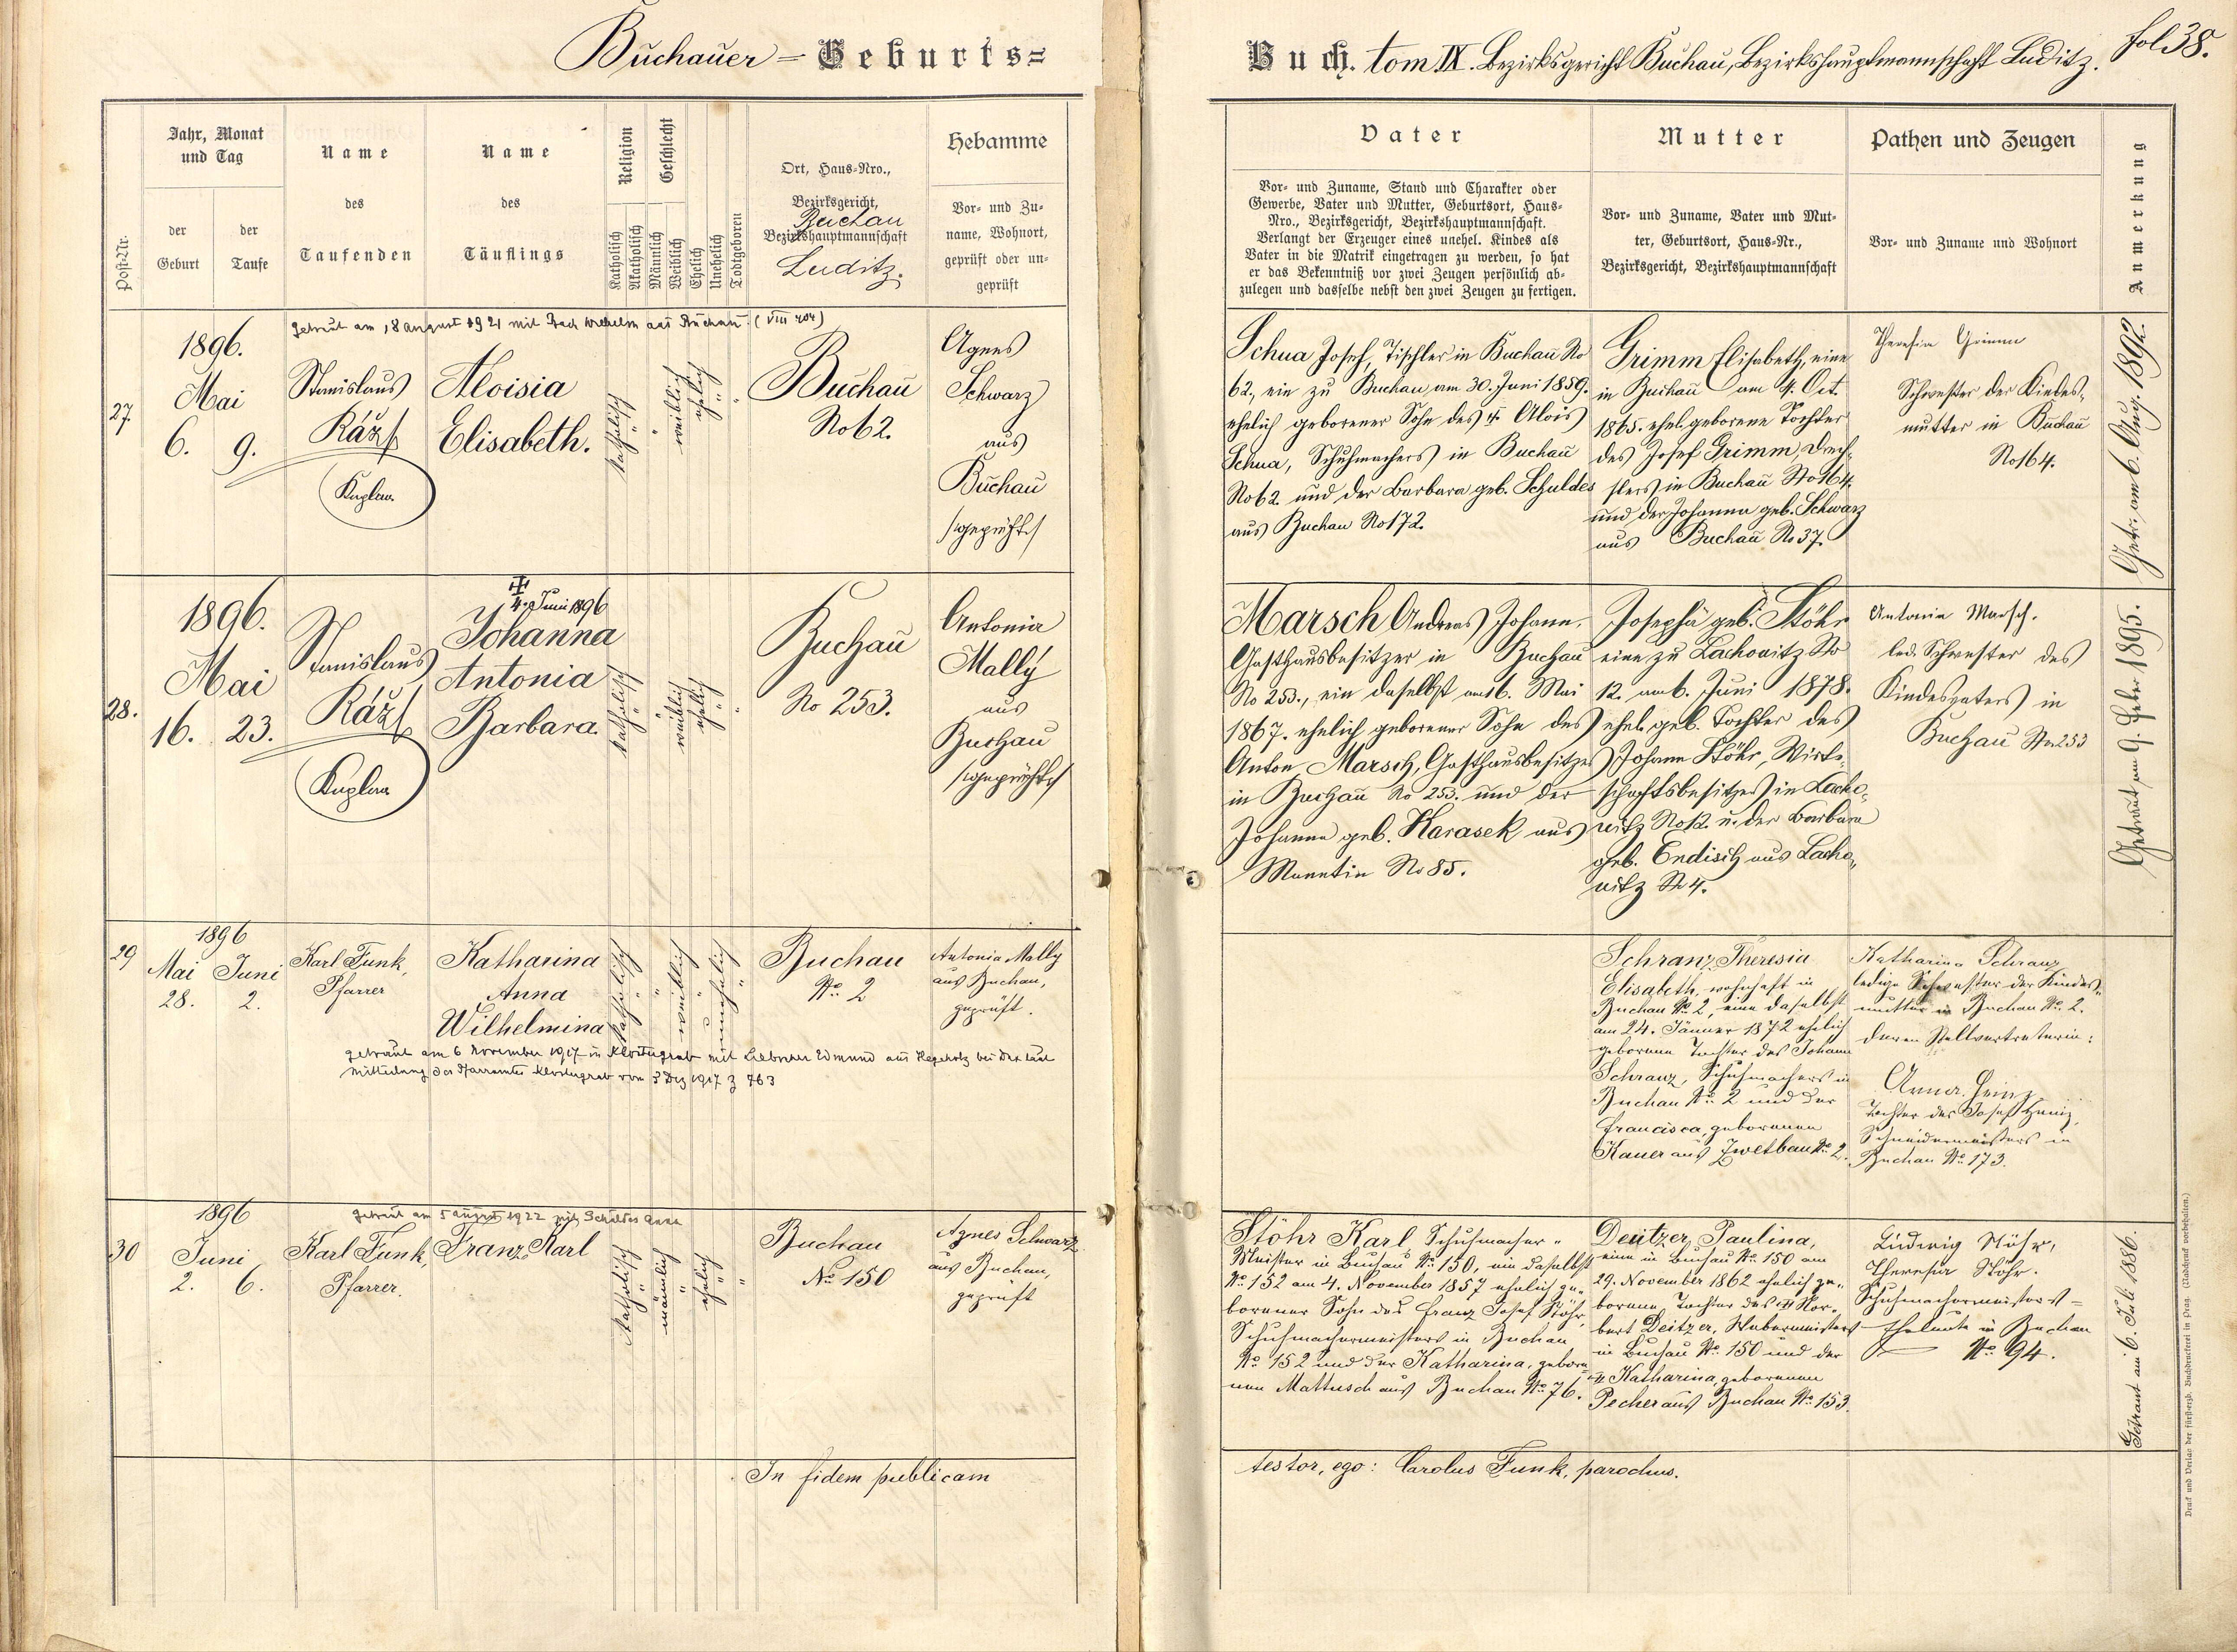 Buchauer = Geburts=
Buch. tom IX. Bezirksgericht Buchau, Bezirkshauptmannschaft Luditz.
fol 38.
Post-Nr.
Jahr, Monat
und Tag
der
Geburt
der
Taufe
Name
des
Taufenden
Name
des
Täuflings
Religion
Katholisch
Akatholisch
Geschlecht
Männlich
Weiblich
Ehelich
Unehelich
Todtgeboren
Ort, Haus-Nro.,
Bezirksgericht,
Buchau
Bezirkshauptmannschaft
Luditz.
Hebamme
Vor- und Zu-
name, Wohnort,
geprüft oder un-
geprüft
Vater
Vor- und Zuname, Stand und Charakter oder
Gewerbe, Vater und Mutter, Geburtsort, Haus-
Nro., Bezirksgericht, Bezirkshauptmannschaft.
Verlangt der Erzeuger eines unehel. Kindes als
Vater in die Matrik eingetragen zu werden, so hat
er das Bekenntniß vor zwei Zeugen persönlich ab-
zulegen und dasselbe nebst den zwei Zeugen zu fertigen.
Mutter
Vor- und Zuname, Vater und Mut-
ter, Geburtsort, Haus-Nr.,
Bezirksgericht, Bezirkshauptmannschaft
Pathen und Zeugen
Vor- und Zuname und Wohnort
Anmerkung
getraut am 18 august 1921 mit Bach Wilhelm aus Buchau. (VIII 404)
27.
1896.
Mai
6. 9.
Stanislaus
Ráž
Kaplan
Aloisia
Elisabeth.
katholisch
weiblich
ehelich
Buchau
No 62.
Agnes
Schwarz
aus
Buchau
/geprüft/
Schua Josef, Tischler in Buchau No
62, ein zu Buchau am 30. Juni 1859.
ehelich geborener Sohn des Alois
Schua, Schuhmachers in Buchau
No 62. und der Barbara geb. Schuldes
aus Buchau No 172.
Grimm Elisabeth, eine
in Buchau am 4. Oct.
1865. ehel. geborene Tochter
des Josef Grimm, Drech-
slers in Buchau No 164.
und der Johanna geb. Schwarz
aus Buchau No 37.
Theresia Grimm
Schwester der Kindes-
mutter in Buchau
No 164.
Getr. am 6. Aug. 1892.
28.
1896.
Mai
16. 23.
Stanislaus
Ráž
Kaplan
4. Juni 1896
Johanna
Antonia
Barbara.
katholisch
weiblich
ehelich
Buchau
No 253.
Antonia
Mally
aus
Buchau
/geprüft/
Marsch Andreas Johann,
Gasthausbesitzer in Buchau
No 253., ein daselbst am 16. Mai
1867. ehelich geborener Sohn des
Anton Marsch, Gasthausbesitzers
in Buchau No 253. und der
Johanna geb. Karasek aus
No 85.
Josepha geb. Stöhr
eine zu Lachowitz No
12. am 6. Juni 1878.
ehel. geb. Tochter des
Johann Stöhr, Wirt-
schaftsbesitzers in Lacho-
witz No 12. u. der Barbara
geb. Endisch aus Lacho-
witz No 4.
Antonia Marsch.
led. Schwester des
Kindesvaters in
Buchau No 253
Getraut am 9. Feber 1895.
29
1896
Mai Juni
28. 2.
Karl Funk,
Pfarrer
Katharina
Anna
Wilhelmina
katholisch
weiblich
unehelich
Buchau
No. 2
Antonia Mally
aus Buchau,
geprüft.
getraut am 6 November 1917 in Klostergrab mit Liebscher Edmund aus Hegeholz bei der laut
Mitteilung des Pfarramtes Klostergrab vom 3 Dez 1917 Z 763
Schranz Theresia
Elisabeth, wohnhaft in
Buchau No. 2, eine daselbst
am 24. Jänner 1872 ehelich
geborene Tochter des Johann
Schranz, Schuhmachers in
Buchau No. 2 und der
Francisca, geborenen
Kauer aus Zwetbau No. 2.
Katharina Schranz
ledige Schwester der Kindes-
mutter in Buchau No. 2.
deren Stellvertreterin:
Anna Heinz,
Tochter des Josef Heinz,
Schneidermeisters in
Buchau No. 173.
30
1896
Juni
2. 6.
getraut am 5 august 1922 mit Schuldes Anna
Karl Funk,
Pfarrer.
Franz Karl
katholisch
männlich
ehelich
Buchau
No. 150
Agnes Schwarz
aus Buchau,
geprüft
Stöhr Karl Schuhmacher-
Meister in Buchau No. 150, ein daselbst
No. 152 am 4. November 1857 ehelich ge-
borener Sohn des Franz Josef Stöhr,
Schuhmachermeisters in Buchau
No. 152 und der Katharina, gebore-
nen Mattusch aus Buchau No. 76.
Deitzer Paulina,
eine in Buchau No. 150 am
29. November 1862 ehelich ge-
borene Tochter des Nor-
bert Deitzer, Webermeisters
in Buchau No. 150 und der
Katharina, geborenen
Pecher aus Buchau No. 153.
Ludwig Stöhr,
Theresia Stöhr.
Schuhmachermeisters-
Eheleute in Buchau
No. 94.
Getraut am 6. Juli 1886.
In fidem publicam
testor, ego: Carolus Funk, parochus.
Druck und Verlag der fürsterzb. Buchdruckerei in Prag. (Nachdruck vorbehalten.)